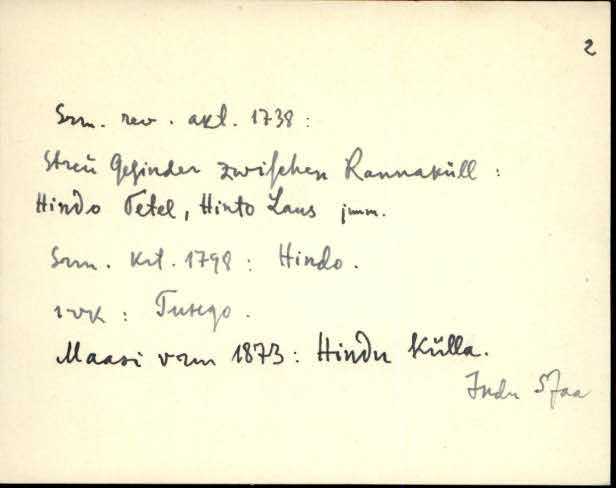 2
Srm. rev. akt. 1738:
Streü Gesinder zwischen Rannaküll:
Hindo Tetel, Hinto Laus jmm.
Srm. krt. 1798: Hindo.
1-vk: Tusego.
Maasi vrm 1873: Hindu Külla.
Indu